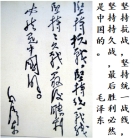 坚持抗战,坚持统一战线,
坚持持久战,最后胜利必然
是中国的。
毛泽东
坚持抗战坚持统一战线
坚持持久战最后胜利
必然是中国的
毛泽东